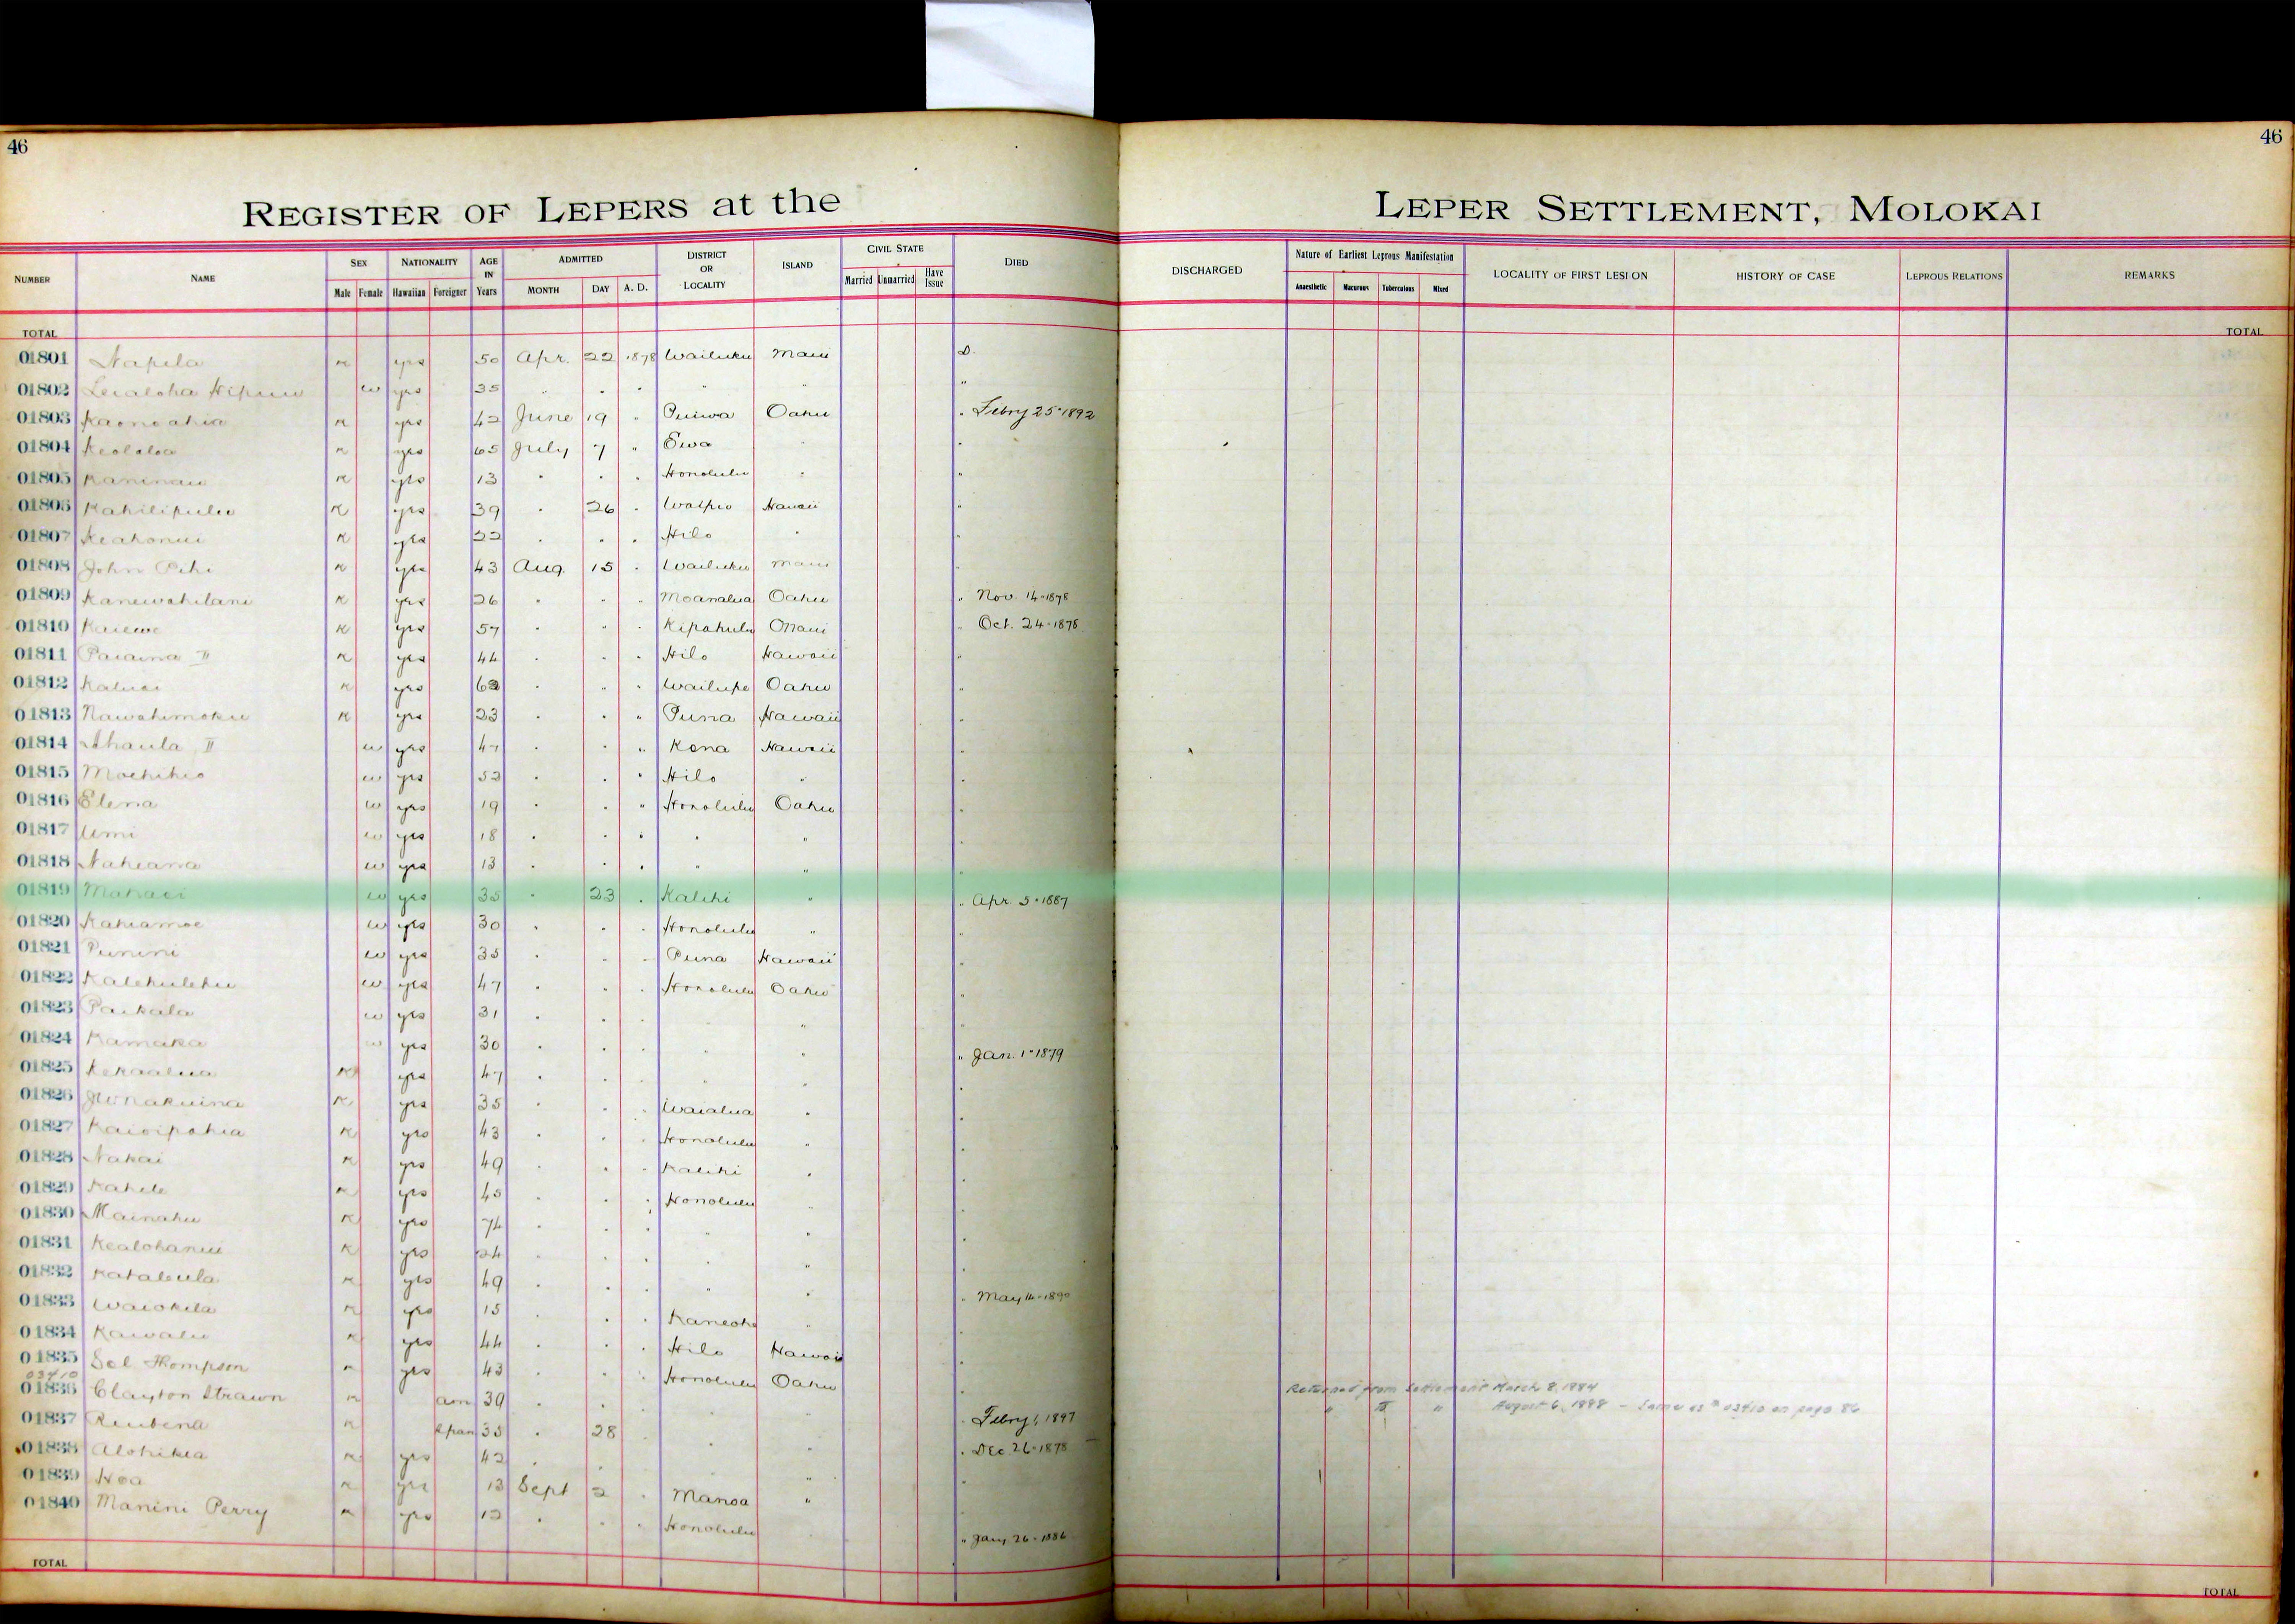 46
46
REGISTER OF LEPERS at the
LEPER SETTLEMENT, MOLOKAI
NUMBER NAME SEX Male Female NATIONALITY Hawaiian Foreigner AGE IN Years ADMITTED MONTH DAY A. D. DISTRICT OR LOCALITY ISLAND CIVIL STATE Married Unmarried Have Issue DIED
DISCHARGED Nature of Earliest Leprous Manifestation Anaesthetic Macurous Tuberculous Mixed LOCALITY OF FIRST LESION HISTORY OF CASE LEPROUS RELATIONS REMARKS
TOTAL TOTAL
01801 Napela m yes 50 Apr. 22 1878 Wailuku Maui D.
01802 Leialoha w yes 35 " " " " " "
01803 Kaonoahia m yes 42 June 19 " Puiwa Oahu " Febry 25 - 1892
01804 Keololoa m yes 65 July 7 " Ewa " "
01805 Kaninau m yes 13 " " " Honolulu " "
01806 Kahilipulu m yes 39 " 26 " Waipio Hawaii "
01807 Keahonui m yes 22 " " " Hilo " "
01808 John m yes 43 Aug. 15 " Wailuku Maui "
01809 Kanewahilani m yes 26 " " " Moanalua Oahu " Nov. 14 - 1878
01810 Kaiewe m yes 57 " " " Kipahulu Maui " Oct. 24 - 1878
01811 Paiaina II m yes 44 " " " Hilo Hawaii "
01812 Kaluai m yes " " " Wailupe Oahu "
01813 Nawahimoku m yes 23 " " " Puna Hawaii "
01814 Ahaula II w yes 47 " " " Kona Hawaii "
01815 w yes 52 " " " Hilo " "
01816 Elena w yes 19 " " " Honolulu Oahu "
01817 Umi w yes 18 " " " " " "
01818 Naheana w yes 13 " " " " " "
01819 w yes 35 " 23 " Kalihi " " Apr. 5 - 1887
01820 Kahiamoe w yes 30 " " " Honolulu " "
01821 Punini w yes 35 " " " Puna Hawaii "
01822 Kalehulehu w yes 47 " " " Honolulu Oahu "
01823 Paikala w yes 31 " " " " "
01824 Kamaka w yes 30 " " " " " " Jan. 1 - 1879
01825 Kekaalua m yes 47 " " " " " "
01826 m yes 35 " " " Waialua " "
01827 Kaioipahia m yes 43 " " " Honolulu " "
01828 Nakai m yes 49 " " " Kalihi " "
01829 Kahele m yes 45 " " " Honolulu " "
01830 Mainahu m yes 74 " " " " " "
01831 Kealohanui m yes 24 " " " " " "
01832 m yes 49 " " " " " " May 14 - 1890
01833 Waiokila m yes 15 " " " Kaneohe " "
01834 Kawalu m yes 44 " " " Hilo Hawaii "
01835 Sol Thompson m yes 43 " " " Honolulu Oahu "
03410
01836 Clayton Strawn m Am 39 " " " " " " Febry 1, 1897 Returned from Settlement March 8, 1884
" " " August 6, 1888 - Same as # 03410 on page 86
01837 Reubena m 35 " 28 " " " " Dec 26 - 1878
01838 Alohikea m yes 42 " " " " "
01839 Hoa m yes 13 Sept 2 " Manoa " "
01840 Manini Perry m yes 12 " " " Honolulu " Jany 26 - 1886
TOTAL TOTAL